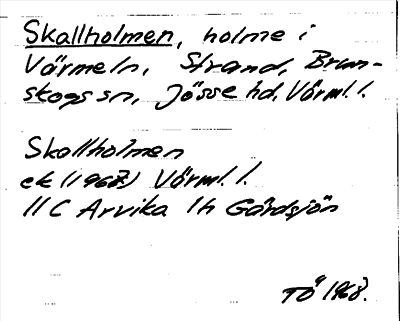 Skallholmen, holme i
Värmeln, Strand, Brun-
skogs sn, Jösse hd, Värml. l.
Skallholmen
ek (1967) Värml. l.
11 C Arvika 1h Gårdsjön
TÖ 1968.